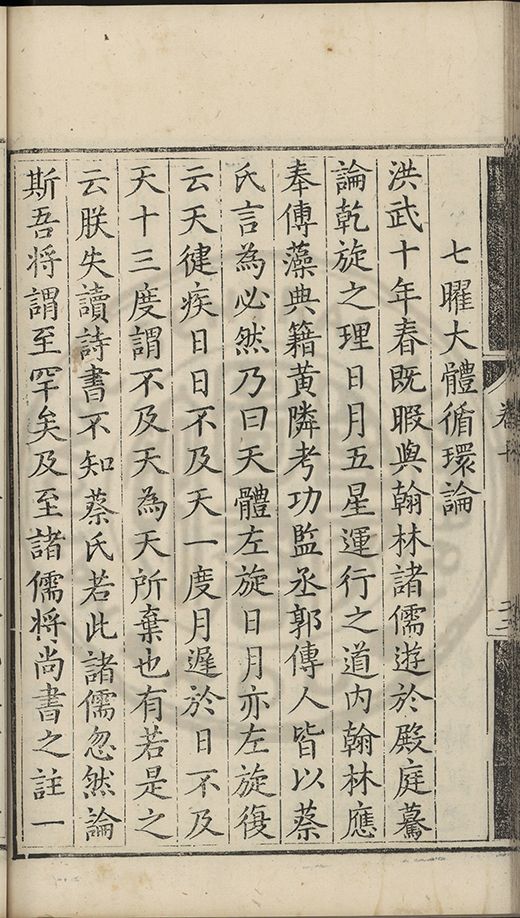 七曜大體循環論
洪武十年春既暇與翰林諸儒遊於殿庭驀
論乾旋之理日月五星運行之道内翰林應
奉傅藻典籍黃隣考功監丞郭傳人皆以蔡
氏言為必然乃曰天體左旋日月亦左旋復
云天健疾日日不及天一度月遲於日不及
天十三度謂不及天為天所棄也有若是之
云朕失讀詩書不知蔡氏若此諸儒忽然論
斯吾將謂至罕矣及至諸儒將尚書之註一